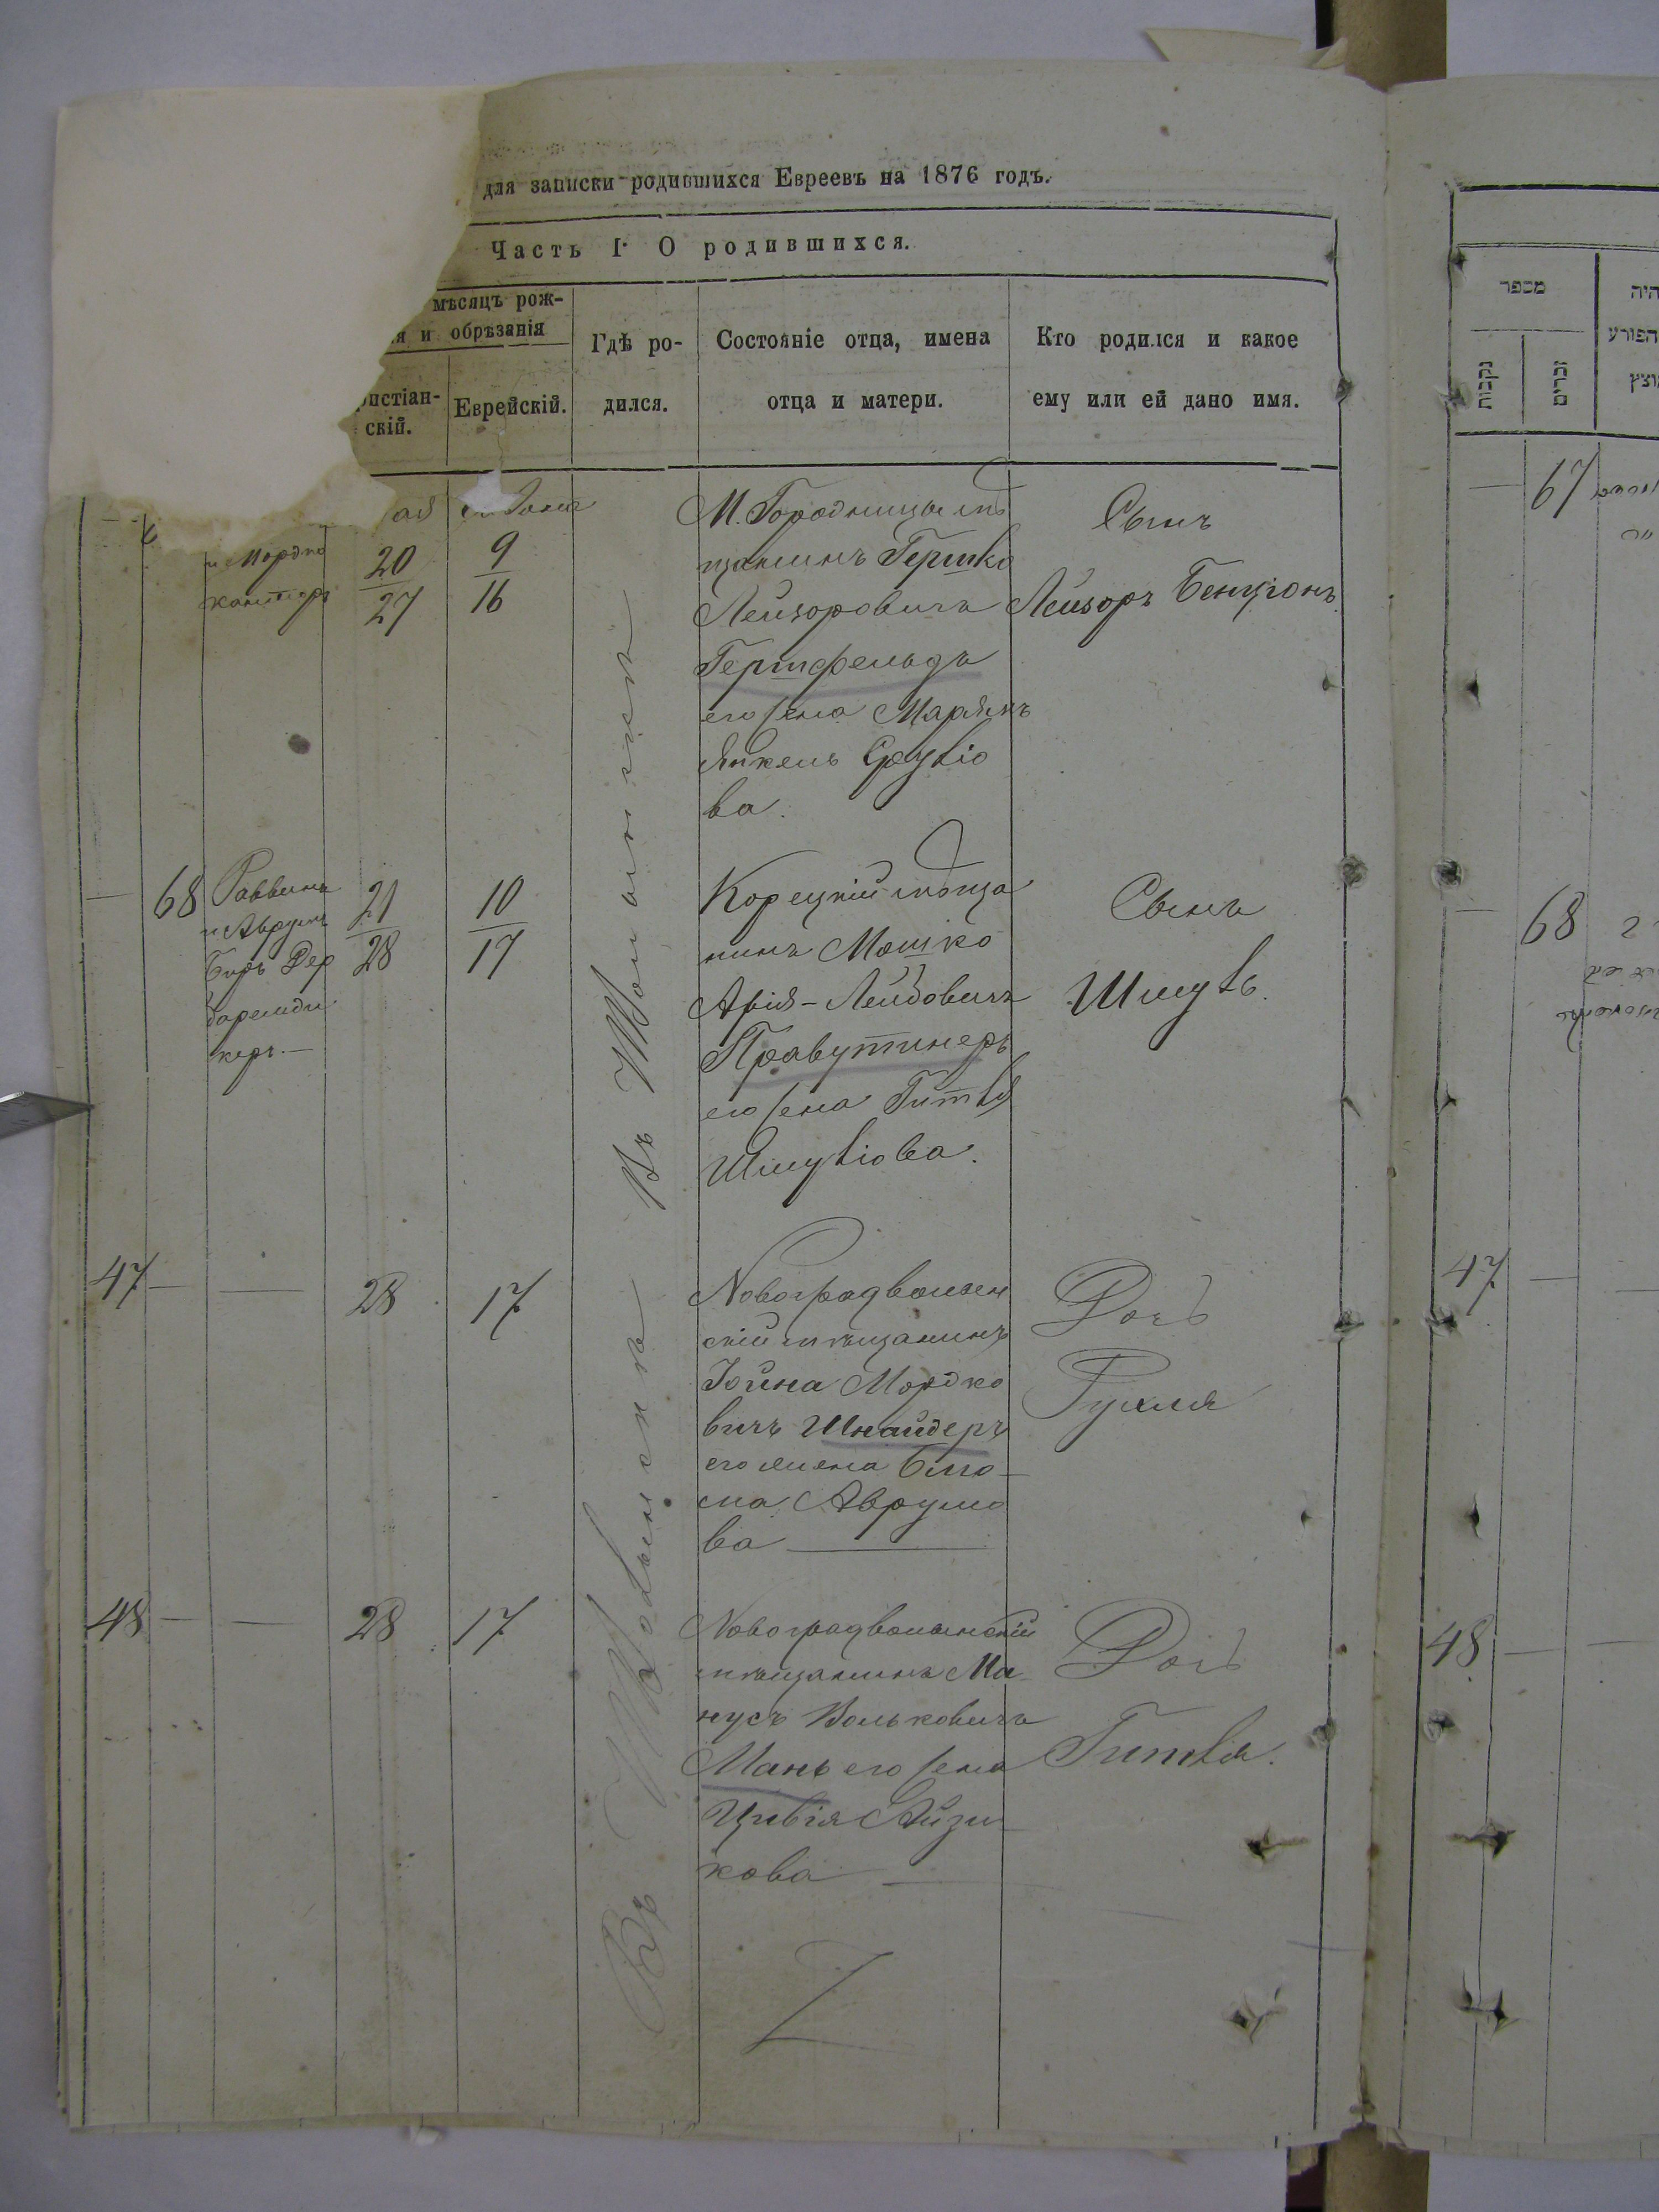 для записки родившихся Евреевъ на 1876 годъ.
Часть I. О родившихся.
мѣсяцъ рож-
я и обрѣзанія
ристіан-
скій.
Еврейскій.
Гдѣ ро-
дился.
Состояніе отца, имена
отца и матери.
Кто родился и какое
ему или ей дано имя.
и Мордко
20
27
9
16
М. Городницы мѣ
щанинъ Гершко
Лейзоровичъ
Гершфельдъ
его жена Марьямъ
ва.
Сынъ
Лейзоръ Бенціонъ
68
Раввинъ
и Аврумъ
Беръ Дер
керъ.—
21
28
10
17
Корецкій мѣща
нинъ Мошко
Арія-Лейбовичъ
Правутинеръ
его жена Гитля
Шмулiова.
Сынъ
Шмуль.
47
28
17
Новоградволын
скій мѣщанинъ
Іойна Мордко
вичъ Шнайдеръ
его жена Блю-
ма Аврумо
ва
Дочь
Рухля
48
28
17
Новоградволынскій
мѣщанинъ Ма
нусъ Вольковичъ
Мань его жена
Цивія Айзи-
кова
Дочь
Гитля.
מספר
נקבות
זכרים
היה
הפורע
67
68
47
48